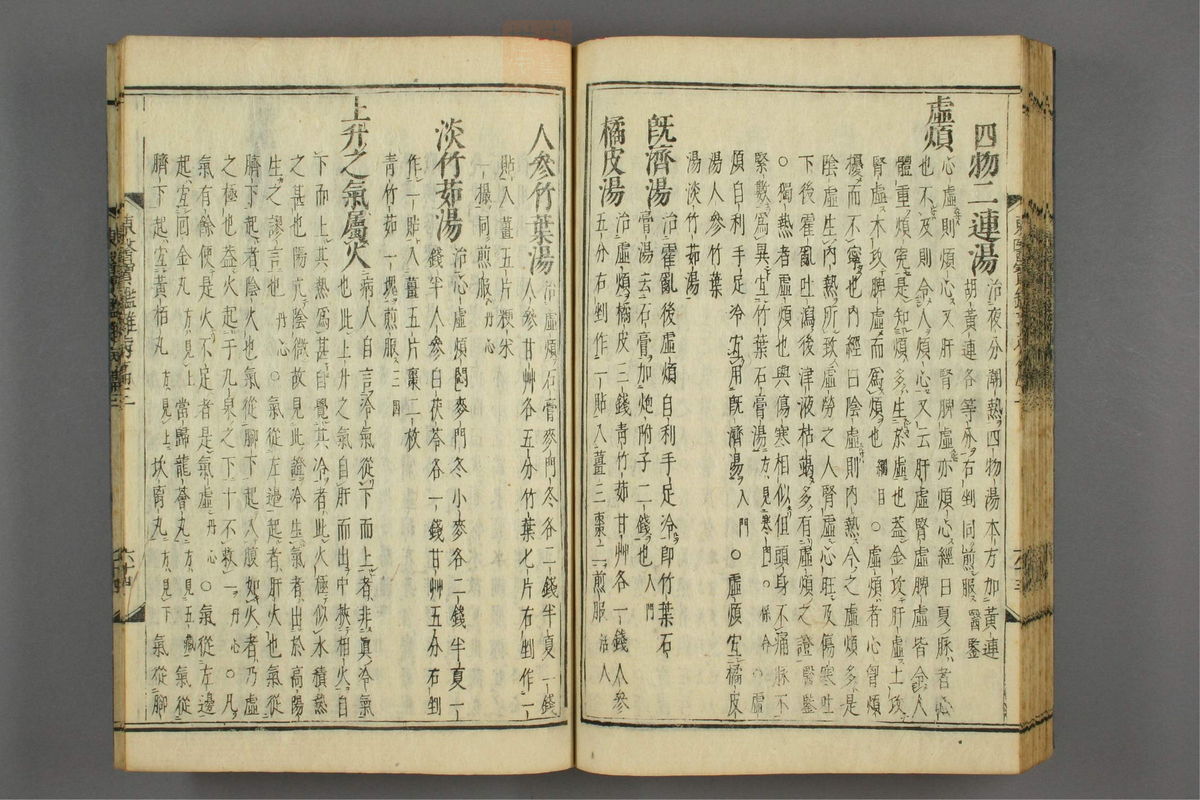 四物二連湯 治夜分潮熱四物湯本方加黃連
胡黃連各等分右剉同煎服 醫鑒
虛煩 心虛則煩心又肝腎脾虛亦煩心經曰夏脉者心
也不及則令人煩心又云肝虛腎虛脾虛皆令人
體重煩寃是知煩多生於虛也盖金攻肝虛土攻
腎虛木攻脾虛而爲煩也 綱目 ○虛煩者心胷煩
擾而不寧也內經曰陰虛則內熱今之虛煩多是
陰虛生內熱所致虛勞之人腎虛心旺及傷寒吐
下後霍亂吐瀉後津液枯竭多有虛煩之證 醫鑒
○獨熱者虛煩也與傷寒相似但頭身不痛脉不
緊數爲異宜竹葉石膏湯 方見寒門 ○ 保命 ○虛
煩自利手足冷宜用旣濟湯 入門 ○虛煩宜橘皮
湯人參竹葉
湯淡竹茹湯
旣濟湯 治霍亂後虛煩自利手足冷卽竹葉石
膏湯去石膏加炮附子二錢也 入門
橘皮湯 治虛煩橘皮三錢靑竹茹甘艸各一錢人參
五分右剉作一貼入薑三棗二煎服 活人
人參竹葉湯 治虛煩石膏麥門冬各二錢半夏一錢
人參甘艸各五分竹葉七片右剉作一
貼入薑五片粳米
一撮同煎服 丹心
淡竹茹湯 治心虛煩悶麥門冬小麥各二錢半夏一
錢半人參白茯苓各一錢甘艸五分右剉
作一貼入薑五片棗二枚
靑竹茹一塊煎服 三因
上升之氣屬火 病人自言冷氣從下而上者非眞冷氣
也此上升之氣自肝而出中挾相火自
下而上其熱爲甚自覺其冷者此火極似水積熱
之甚也陽亢陰微故見此證冷生氣者出於高陽
生之謬言也 丹心 ○氣從左邊起者肝火也氣從
臍下起者陰火也氣從脚下起入腹如火者乃虛
之極也盖火起于九泉之下十不救一 丹心 ○凡
氣有餘便是火不足者是氣虛 丹心 ○氣從左邊
起宜回金丸 方見上 當歸龍薈丸 方見五藏 氣從
臍下起宜黃栢丸 方見上 坎离丸 方見下 氣從脚